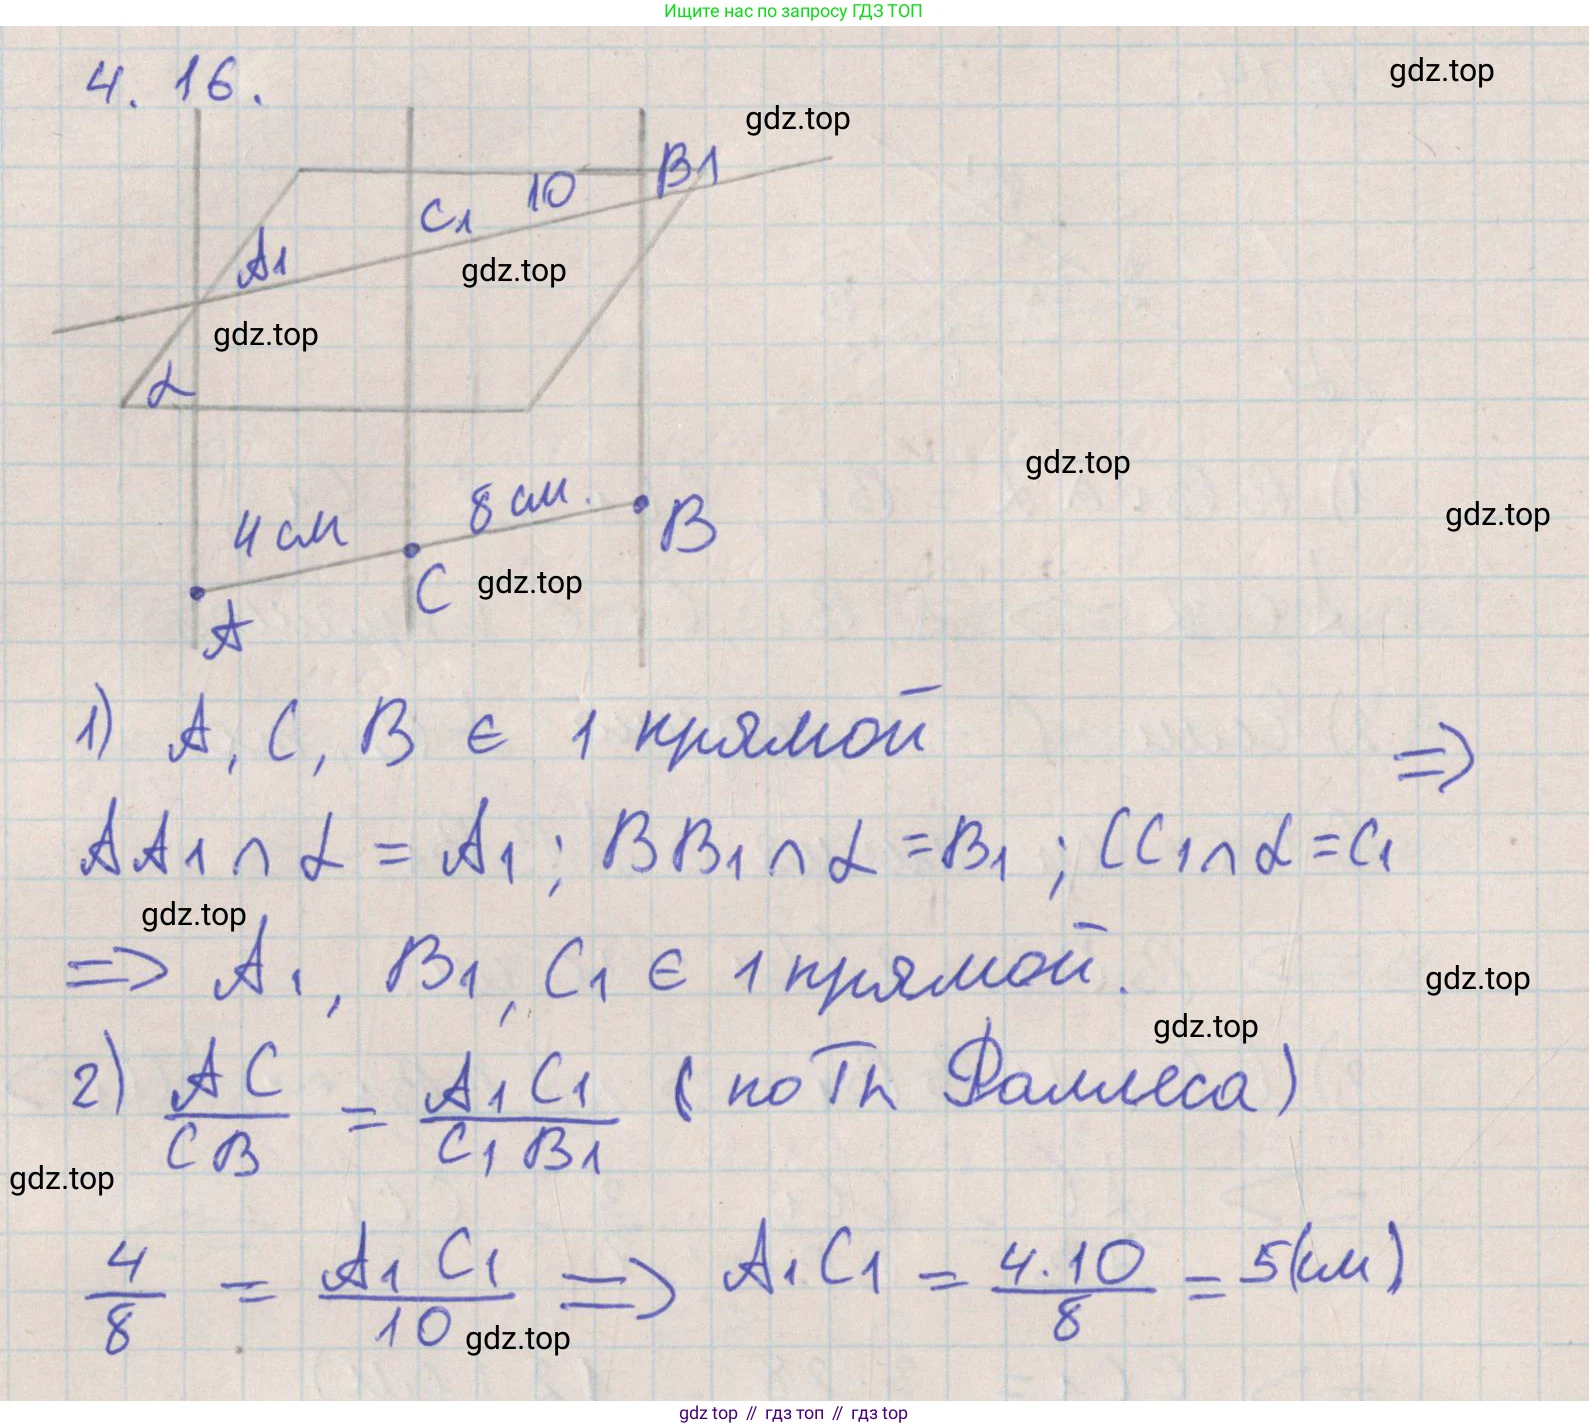 Ищите нас по запросу ГДЗ ТОП
4. 16.
gdz.top
gdz.top
B1
10
C1
A1
gdz.top
gdz.top
α
gdz.top
8 см.
4 см
B
gdz.top
C
gdz.top
A
1) A, C, B ∈ 1 прямой
=>
AA1 ∩ α = A1 ; BB1 ∩ α = B1 ; CC1 ∩ α = C1
gdz.top
=> A1, B1, C1 ∈ 1 прямой.
gdz.top
gdz.top
2) AC/CB = A1C1/C1B1 (по Th Фаллеса)
gdz.top
4/8 = A1C1/10 => A1C1 = 4·10/8 = 5(см)
gdz.top
gdz top // гдз топ // гдз top